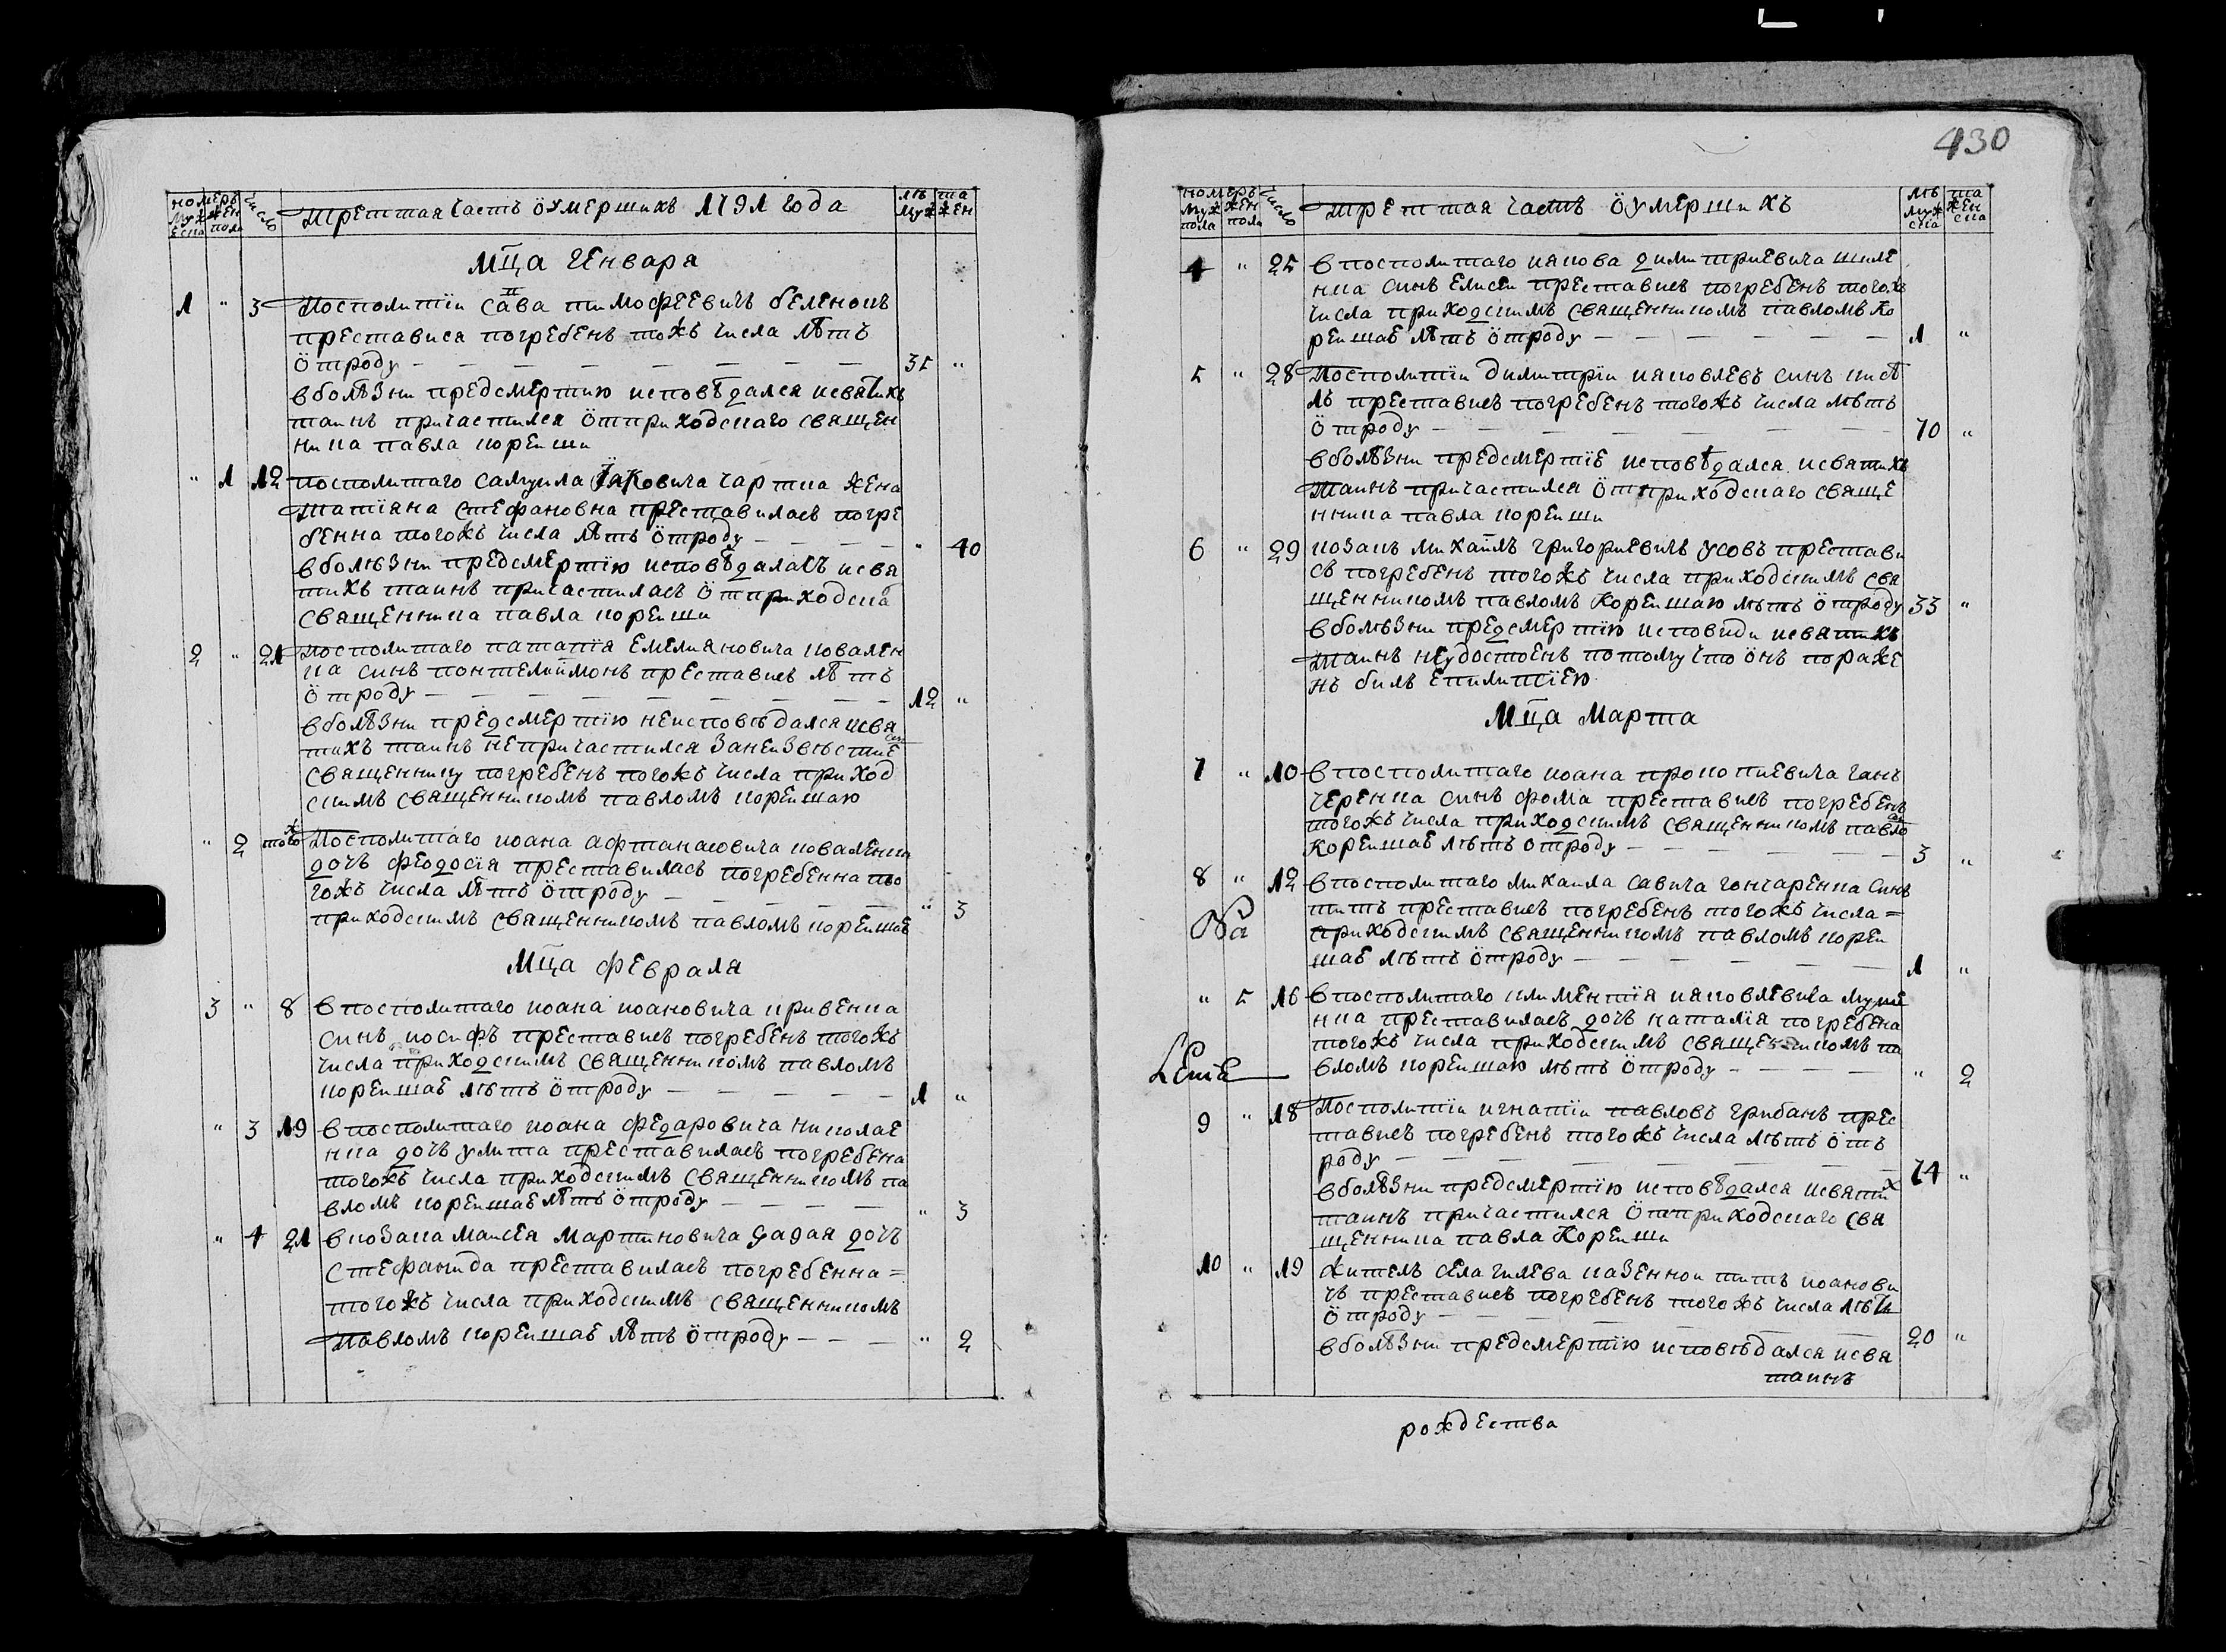 430
номеръ число Треттая часть оумершихъ 1791 года лѣ та
муж жен муж жен
еска пола
Мца Генваря
1 " 3 Посполитіи Сава тимофеевичъ беленокъ
преставися погребенъ тожъ числа лѣтъ
ѿ троду — — — — — — — 35 "
вболѣзни предсмертию исповѣдался исвятихъ
таинъ причастился ѿ приходскаго священ
ника павла корейши
" 1 12 посполитаго самуила Іаковича чартка жена
Татіана Стефановна преставилась погре
бенна тогожъ числа лѣтъ ѿ троду — — — — " 40
вболѣзни предсмертію исповѣдалась исвя
тихъ таинъ причастилась ѿ приходска
священника павла корейши
2 " 21 посполитаго патапія емелияновича коволен
ка синъ понтелиймонъ преставись лѣтъ
ѿ троду — — — — — — — 12 "
вболѣзни предсмертію неисповѣдался исвя
тихъ таинъ непричастился занеизвѣстие
священнику погребенъ тогожъ числа приход
скимъ священникомъ павломъ корейшаю
" 2 тогож Посполитаго иоана афтанасовича коваленка
дочъ феодосія преставилась погребенна то
гожъ числа лѣтъ ѿ троду — — — — — " 3
приходскимъ священникомъ павломъ корейшае
Мца февраля
3 " 8 в посполитаго иоана иоановича кривенка
синъ иосифъ преставись погребенъ тогожъ
числа приходскимъ священникомъ павломъ
корейшае лѣтъ ѿ троду — — — — — 1 "
" 3 19 в посполитаго иоана федаровича николае
нка дочъ улита преставилась погребена
тогожъ числа приходскимъ священникомъ па
вломъ корейшае лѣтъ ѿ троду — — — — " 3
" 4 21 в козака маисея мартиновича дочъ
Стефанида преставилась погребенна=
тогожъ числа приходскимъ священникомъ
Павломъ корейшае лѣтъ ѿ троду — — — " 2
номеръ число Треттая часть оумершихъ лѣ та
муж жен муж жен
пола пола ска ска
4 " 25 в посполитаго иякова димитриевича шиле
нка синъ елисеи преставись погребенъ тогож
числа приходскимъ священникомъ павломъ Ко
рейшае лѣтъ ѿ троду — — — — — — 1 "
5 " 28 Посполитіи Димитріи ияковлевъ синъ кисѣ
лъ преставись погребенъ тогожъ числа лѣтъ
ѿ троду — — — — — — — 70 "
вболѣзни предсмертіе исповѣдался исвятихъ
Таинъ причастился ѿ приходскаго свяще
нника павла корейши
6 " 29 козакъ михаилъ григориевичъ усовъ престави
сь погребенъ тогожъ числа приходскимъ свя
щенникомъ павломъ Корейшаю лѣтъ ѿ троду 33 "
вболѣзни предсмертію исповиди исвятихъ
Таинъ неудостоенъ потомучто онъ пораже
нъ билъ епилипсіею
Мца Марта
7 " 10 в посполитаго иоана прокопиевича ганъ
черенка синъ фома преставись погребенъ
тогожъ числа приходскимъ священникомъ павло
корейшае лѣтъ ѿ троду — — — — — — 3 "
8 " 12 в посполитаго михаила савича гончаренка синъ
титъ преставись погребенъ тогожъ числа=
приходскимъ священникомъ павломъ корей
шае лѣтъ ѿ троду — — — — — — 1 "
" 5 16 в посполитаго климентія ияковлевича
нка преставилась дочъ наталія погребена
тогожъ числа приходскимъ священникомъ па
вломъ корейшаю лѣтъ ѿ троду — — — — " 2
9 " 18 Посполитіи игнатіи павловъ грибанъ прес
тавись погребенъ тогожъ числа лѣтъ ѿтъ
роду — — — — — — — 74 "
вболѣзни предсмертію исповѣдался исвятих
таинъ причастился ѿ приходскаго свя
щенника павла Корейши
10 " 19 житель села гилева казеннои титъ иоанови
чъ преставись погребенъ тогожъ числа лѣтъ
ѿ троду — — — — — — — 20 "
вболѣзни предсмертію исповѣдался исвя
таинъ
рождества